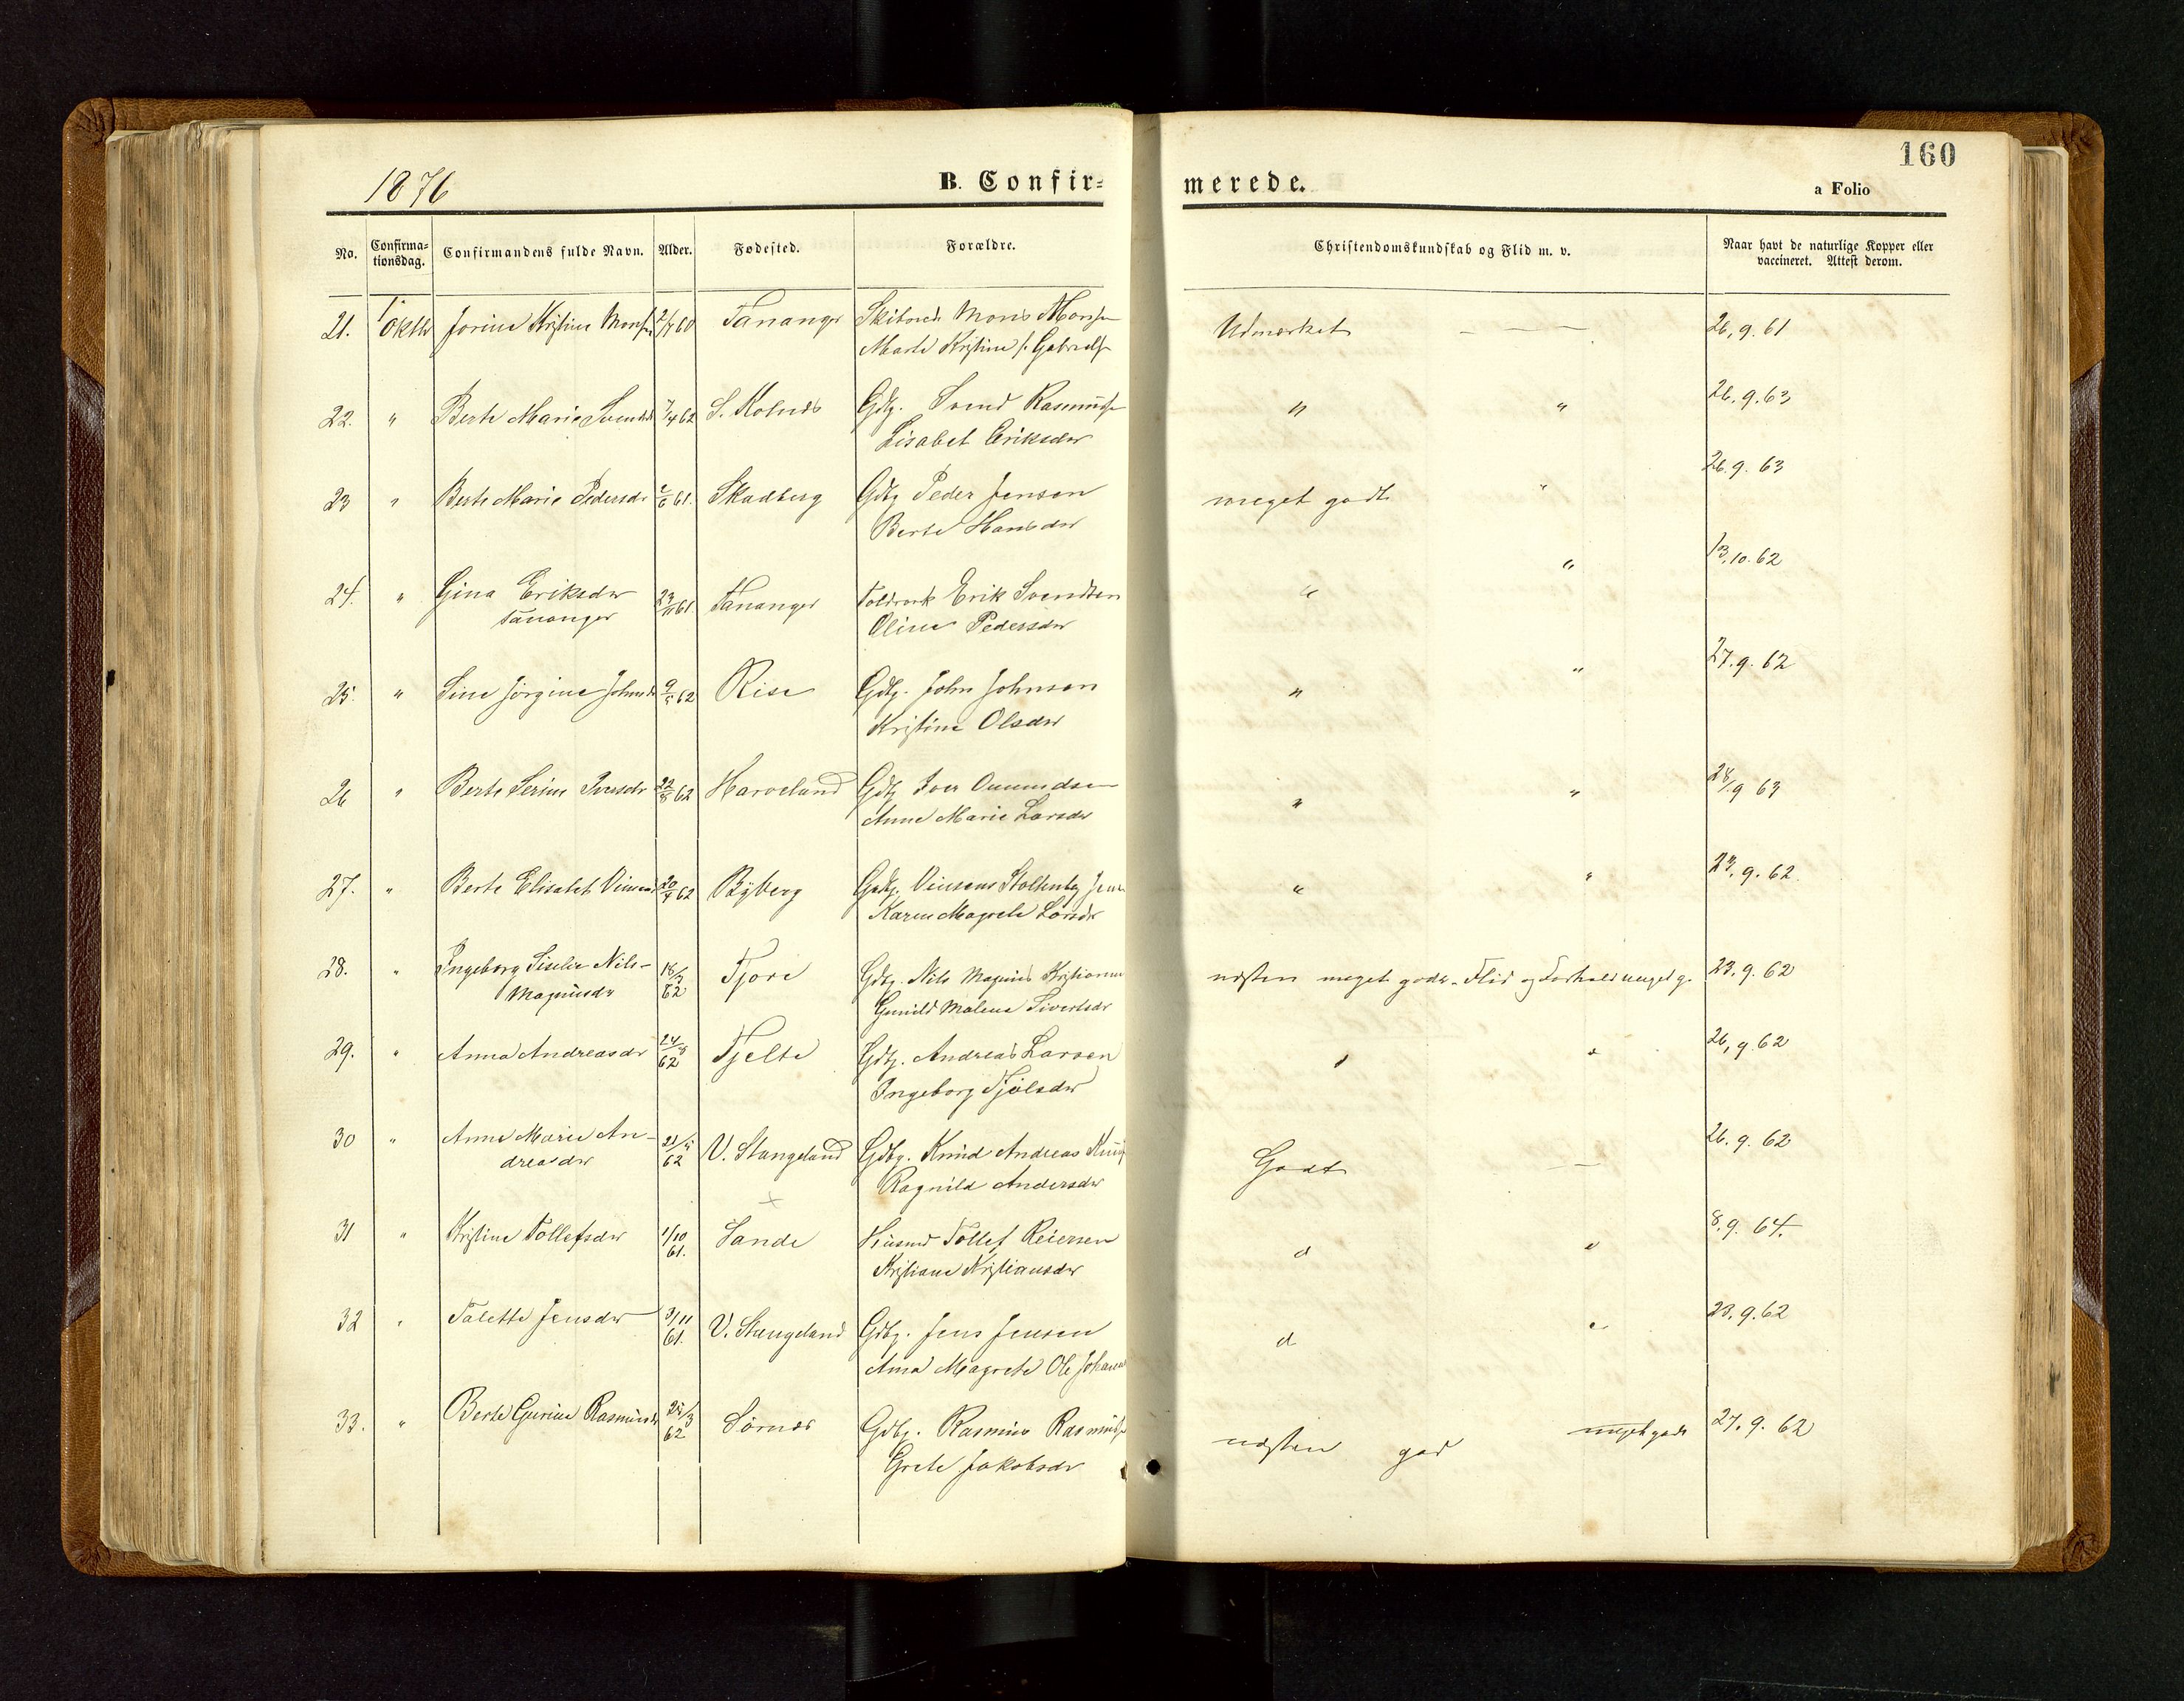 1876
B. Confir=
merede.
160
a Folio
No.
Confirma=
tionsdag.
Confirmandens fulde Navn.
Alder.
Fødested.
Forældre.
Christendomskundskab og Flid m. v.
Naar havt de naturlige Kopper eller
vaccineret. Attest derom.
21. 1 Oktbr Jorine Kristine Monsdr 2/7 60 Tananger Skibsred. Mons Monsen Udmærket — — — 26.9.61
Marte Kristine f. Gabriels
22. " Berte Marie Svendsdr 7/4 62 S. Kolnes Gdbg. Svend Rasmuss " " 26.9.63
Lisabet Eriksdr
23 " Berte Marie Pedersdr 61. Skadberg Gdbg Peder Jensen meget godt " 26.9.63
Berte Hansdr
24. " Gina Eriksdr 23/11 61 Tananger Toldrork Erik Svendsen " " 13.10.62
Tananger Oline Pedersdr
25. " Sine Jørgine Johnsdr 9/5 62 Risa Gdbg. John Johnsen " " 27.9.62
Kristine Olsdr
26 " Berte Serine Iversdr 22/8 62 Harveland Gdbg Iver Omundsen " " 28/9 63
Anne Marie Larsdr
27. " Berte Elisabet Vinsens 20/4 62 Byberg Gdbg. Vinsens Stoltenbg Jens " " 23.9.62.
Karen Magrete Larsdr
28. " Ingeborg Siselie Nils- 18/3 62 Tjora Gdbg. Nils Magnus Kristians næsten meget godt. Flid og Forhold meget g. 23.9.62
Magnusdr Gunild Malene Sivertsdr
29. " Anna Andreasdr 24 62 Tjelta Gdbg. Andreas Larsen " " 26.9.62
Ingeborg Tjølsdr
30 " Anne Marie An- 21/5 62 V. Stangeland Gdbg. Knud Andreas Knu Godt — 26.9.62
dreasdr Ragnild Andersdr
31 " Kristine Tollefsdr 1/10 61. Sande Husmd Tollef Reiersen " " 8.9.64.
Kristiane Kristiansdr
32 " Talette Jensdr 3/11 61. V. Stangeland Gdbg. Jens Jensen " " 23.9.62
Anna Magrete Ole Johann
33. " Berte Gurine Rasmusdr 25/3 62 Sørnes Gdbg. Rasmus Rasmuss næsten god meget godt 27.9.62
Grete Jakobsdr